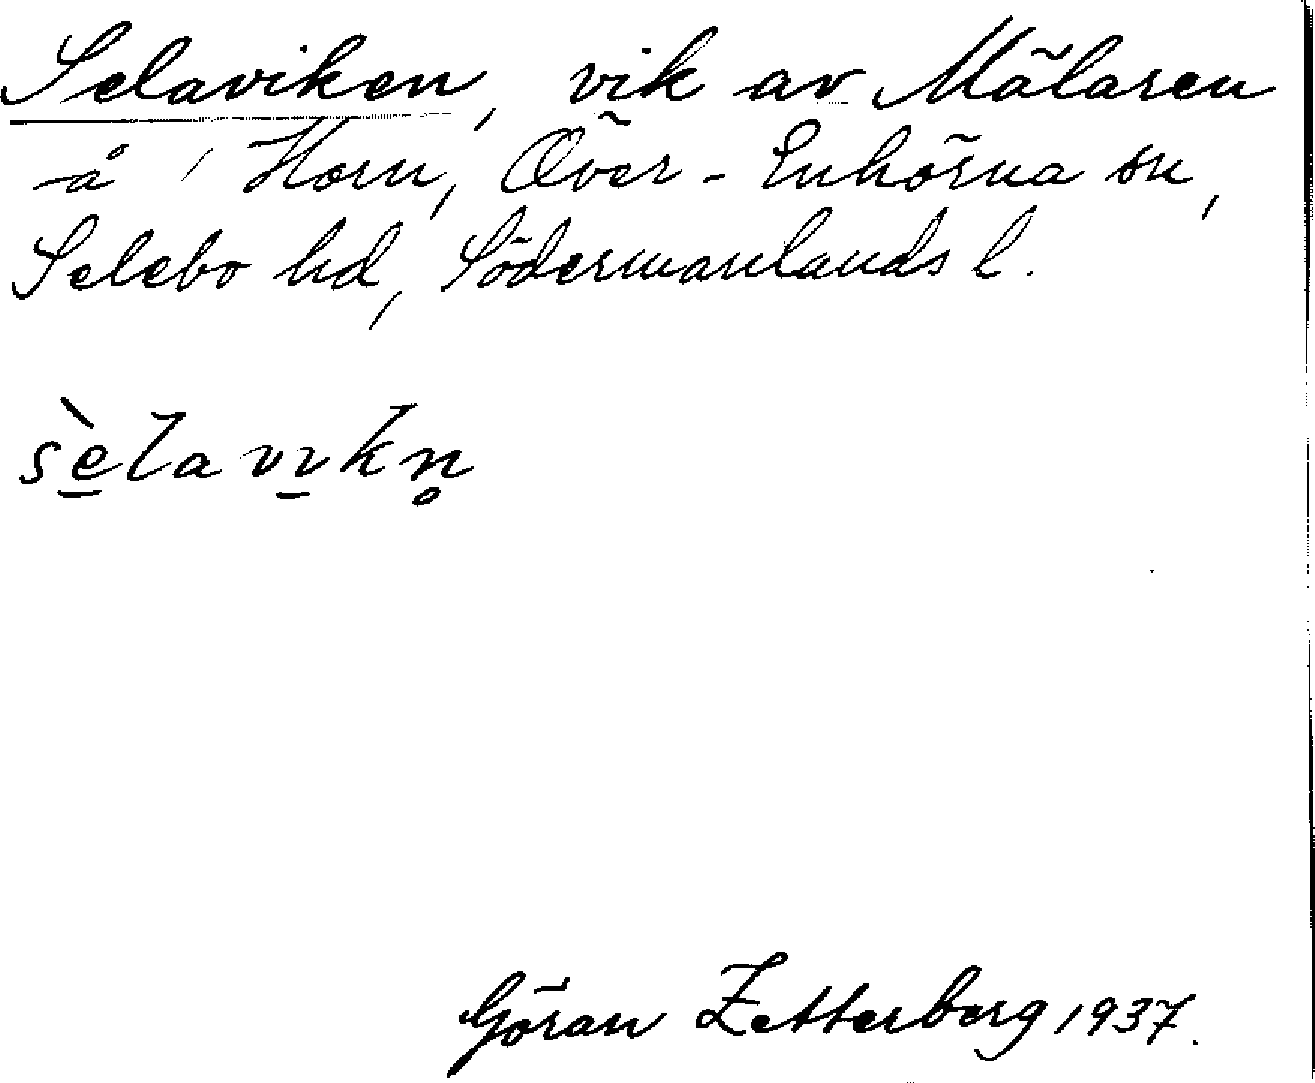 Selaviken, vik av Mälaren
å Horn, Över-Enhörna sn,
Selebo hd, Södermanlands l.
sèlavikn̥
Göran Zetterberg 1937.